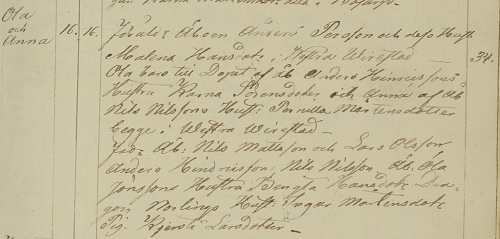 Ola
och
Anna
16. 16. Föräld: Åboen Anders Persson och dess Hust:
Malena Hansdotr i Westra Wirestad — 34.
Ola bars till Dopet af åb. Anders Heinricssons
Hustru Karna Svensdotter och Anna af Åb.
Nils Nilssons Hust: Pernilla Mårtensdotter
Begge i Westra Wirestad —
Fad: Åb: Nils Mattsson och Lars Olsson
Anders Hindricsson, Nils Nilsson, Åb. Ola
Jönssons Hustru Bengta Hansdotr Dra-
gon Norlings Hust: Ingar Mårtensdotr
Pig. Kjersti Larsdotter —